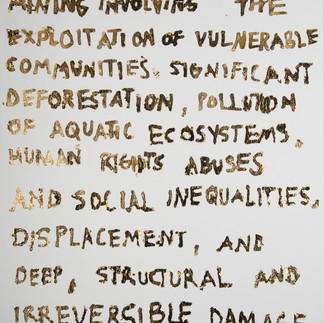 MINING INVOLVING THE
EXPLOITATION OF VULNERABLE
COMMUNITIES, SIGNIFICANT
DEFORESTATION, POLLUTION
OF AQUATIC ECOSYSTEMS,
HUMAN RIGHTS ABUSES
AND SOCIAL INEQUALITIES,
DISPLACEMENT, AND
DEEP, STRUCTURAL AND
IRREVERSIBLE DAMAGE